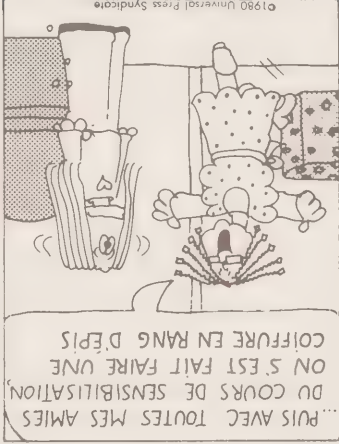 ...PUIS AVEC TOUTES MES AMIES
DU COURS DE SENSIBILISATION,
ON S'EST FAIT FAIRE UNE
COIFFURE EN RANG D'ÉPIS
©1980 Universal Press Syndicate